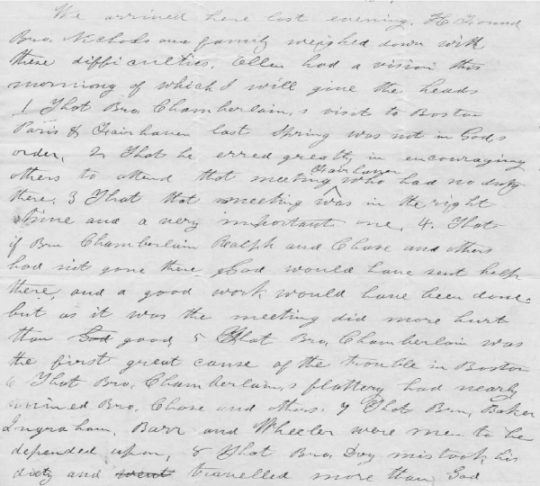 We arrived here last evening. Found
Bro. Nichols and family weighed down with
these difficulties. Ellen had a vision this
morning of which I will give the heads
1 That Bro Chamberlain,s visit to Boston
Paris & Fairhaven last Spring was not in Gods
order, 2 That he erred greatly in encouraging
others to attend that meeting Fairhaven who had no duty
there. 3 That that meeting was in the right
time and a very important one, 4. That
if Bro Chamberlain Ralph and Chase and others
had not gone there God would have sent help
there, and a good work would have been done.
but as it was the meeting did more hurt
than God good 5 That Bro, Chamberlain was
the first great cause of the trouble in Boston
6 That Bro, Chamberlain,s flattery had nearly
ruined Bro, Chase and others. 7 That Bro, Baker
Ingraham, Barr and Wheeler were men to be
depended upon, 8 That Bro, Day mistook his
duty and went travelled more than God